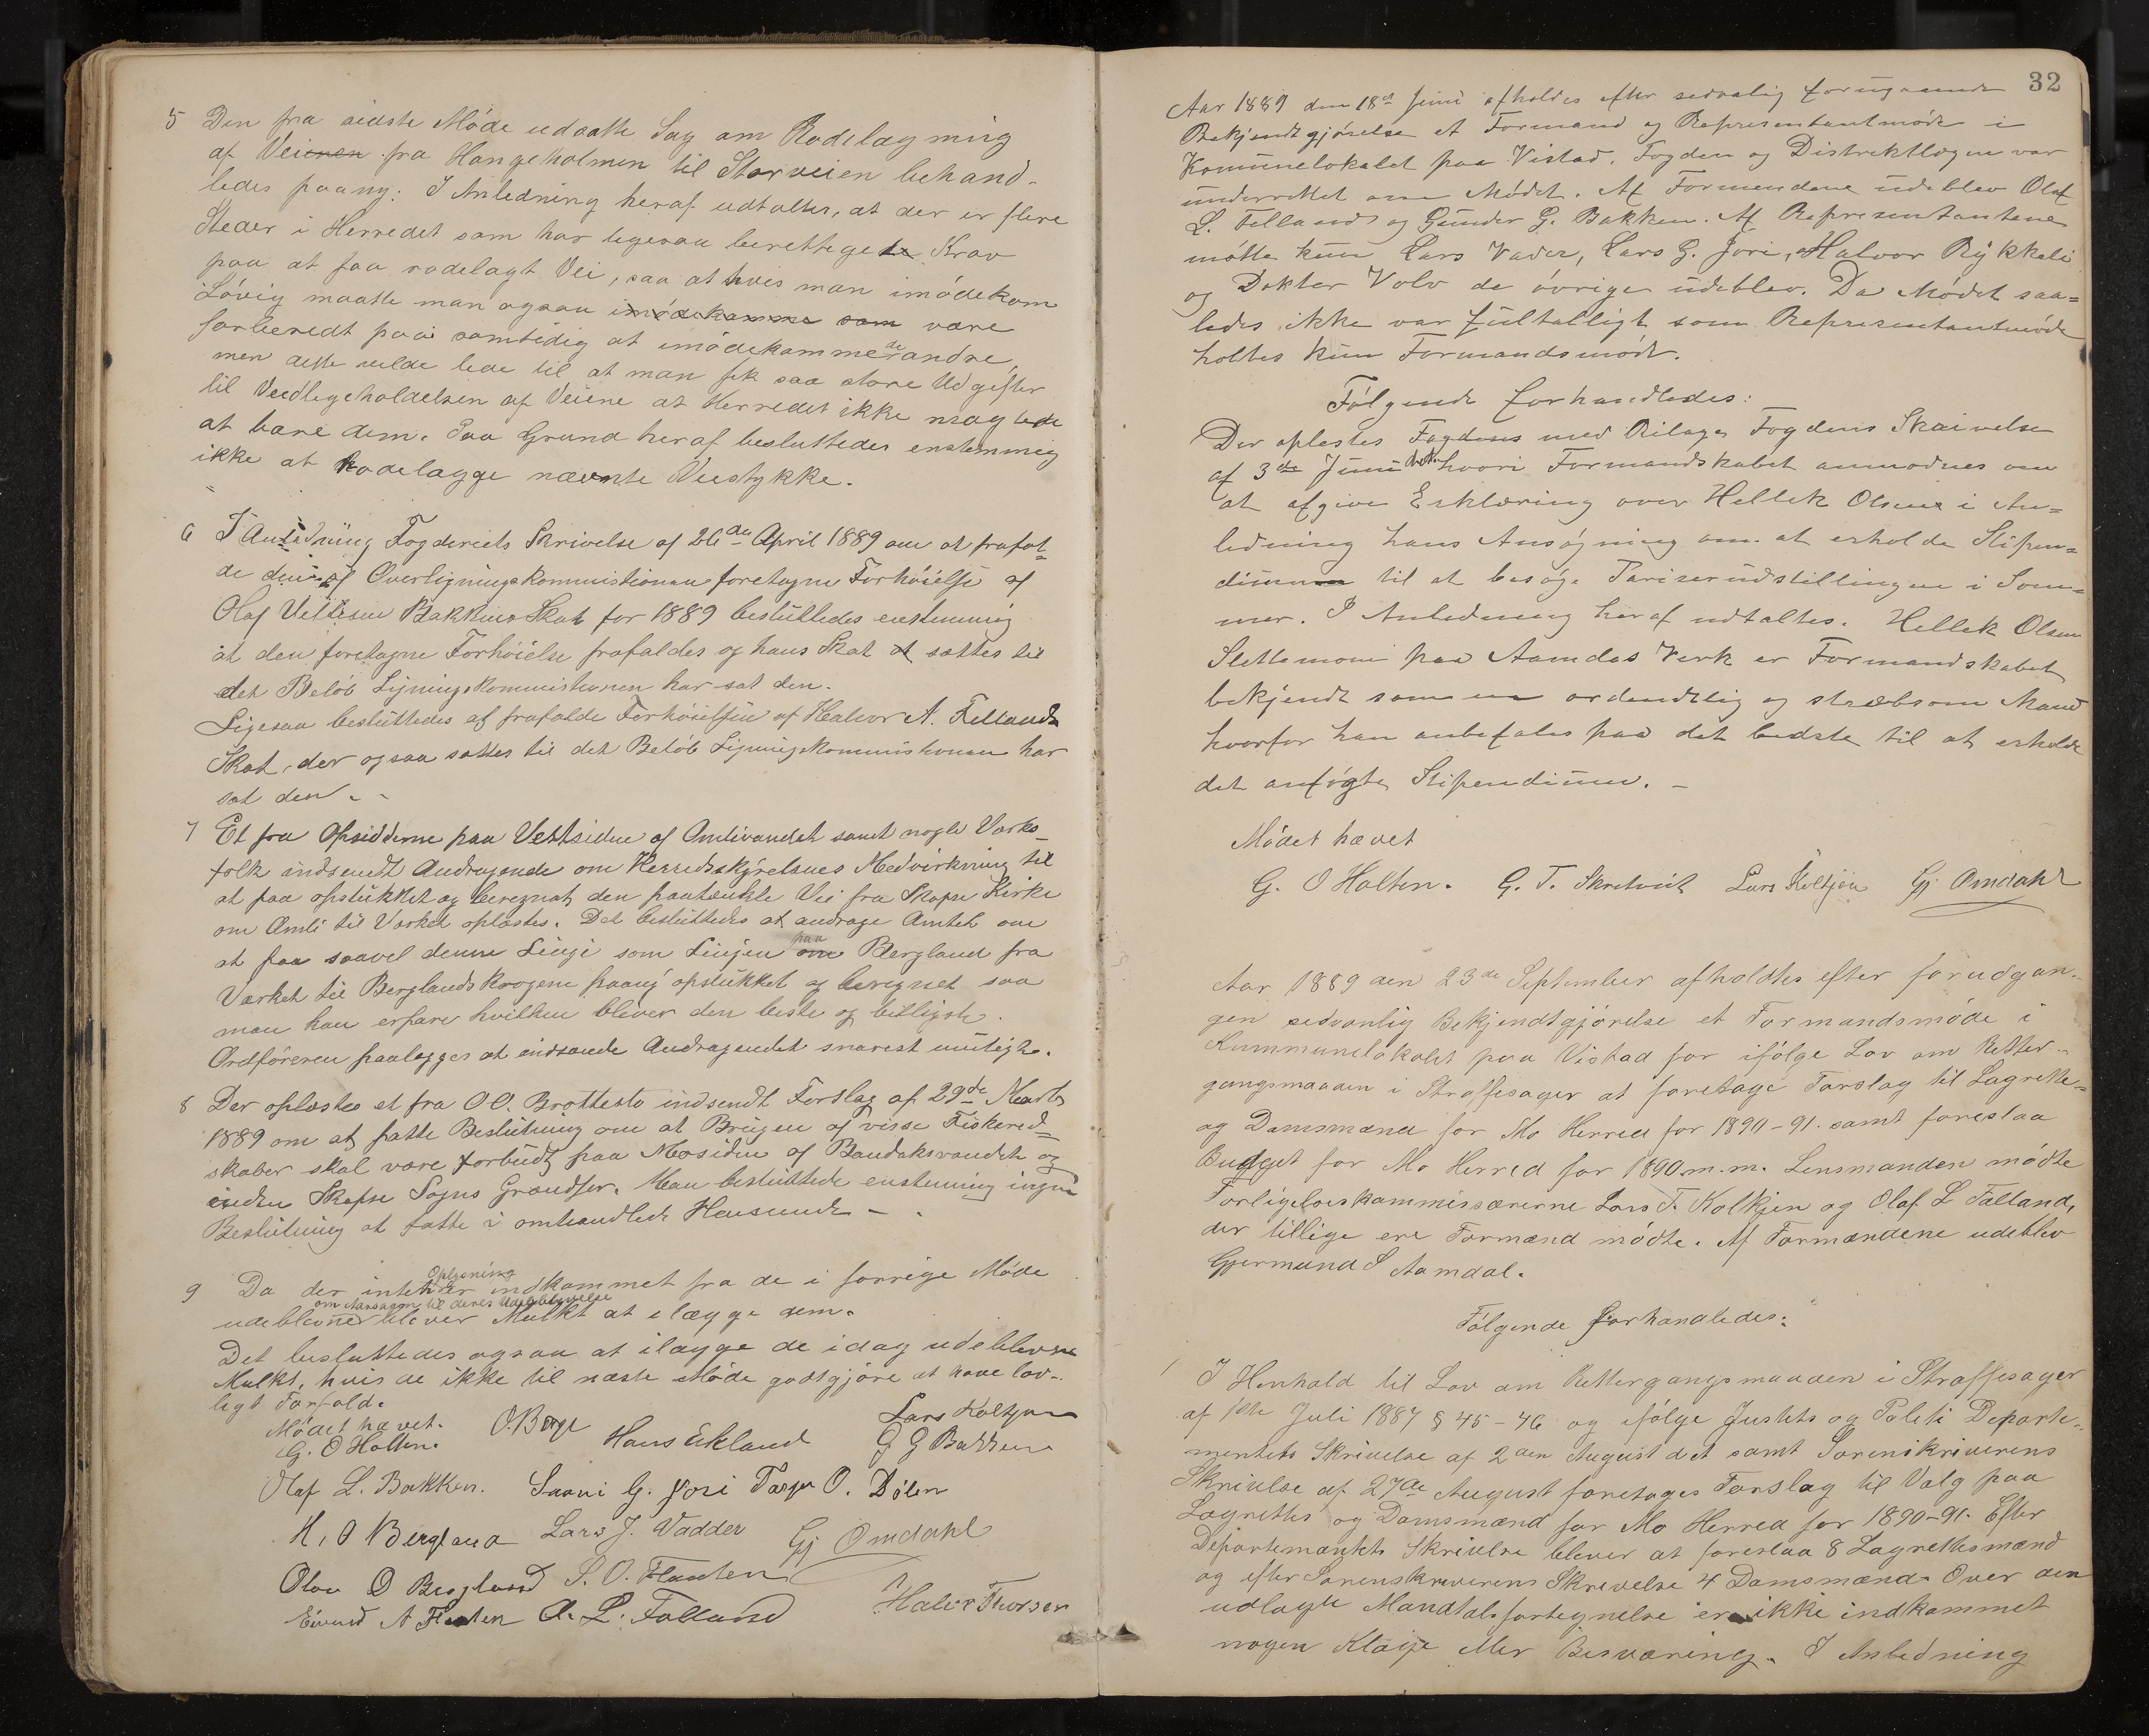 5 Den fra sidste Møde udsatte Sag om Rodelægning
af Veienen fra Hangeholmen til Storveien behand-
ledes paany. I Anledning heraf udtaltes, at der er flere
Steder i Herredet som har ligesaa berettigede Krav
paa at faa rodelagt Vei, saa at hvis man imødekom
Løvig maatte man ogsaa imødekomme som være
forberedt paa samtidig at imødekomme de andre,
men dette vilde lede til at man fik saa store Udgifter
til Vedligeholdelsen af Veiene at Herredet ikke magtede
at bære dem. Paa Grund heraf besluttedes enstemmig
ikke at Rodelægge nævnte Veistykke.
6 I Anledning Fogderiets Skrivelse af 26de April 1889 om at frafal-
de den af Overligningskommistionen foretagne Forhøielse af
Olaf Vettesen Bakkens Skat for 1889 besluttedes enstemmig
at den foretagne Forhøielse frafaldes og hans Skat at sættes til
det Beløb Ligningskommistionen har sat den.
Ligesaa besluttedes at frafalde Forhøielsen af Halvor A. Fellands
Skat, der ogsaa sættes til det Beløb Ligningskommistionen har
sat den. -
7 Et fra Opsidderne paa Vestsiden af Omlivandet samt nogle Værks-
folk indsendt Andragende om Herredsstyrelsens Medvirkning til
at faa opstukket og beregnet den paatænkte Vei fra Skafse Kirke
om Omli til Værket oplæstes. Det besluttedes at andrage Amtet om
at faa saavel denne Linje som Linjen om paa Bergland fra
Værket til Berglandskrogene paany opstukket og beregnet saa
man kan erfare hvilken bliver den beste og billigste.
Ordføreren paalægges at indsende Andragendet snarest muligt.
8 Der oplæstes et fra O O. Brøttestø indsendt Forslag af 29de Marts
1889 om at fatte Beslutning om at Brugen af visse Fiskered=
skaber skal være forbudt paa Mosiden af Bandaksvandet og
inden Skafse Sogns Grændser. Man besluttede enstemmig ingen
Beslutning at fatte i omhandlede Henseende -
9 Da der intet Oplysning er indkommet fra de i forrige Møde
udeblevne om Aarsagen til deres Udeblivelse bliver Mulkt at ilægge dem.
Det besluttedes ogsaa at ilægge de idag udeblevne
Mulkt, hvis de ikke til næste Møde godtgjøre at have lov-
ligt Forfald.
Mødet hævet.
G. O Holten. O. Berge Hans Ekland Lars Koltjen
G G Bakken
Olaf L. Bakken. Saavi G. Jori Tarjer O. Dølen
H. O Bergland Lars J. Vadder Gj Omdahl
Olav O Bergland S. O. Flaaten
Eivind A Flaaten O. L. Falland Halvor Thorsen
32
Aar 1889 den 18de Juni afholdes efter sedvalig forugaaende
Bekjendtgjørelse et Formand og Representantmøde i
Komunelokalet paa Vistad. Fogden og Distriktlægen var
underrettet om Mødet. Af Formendene udeblev Olaf
L. Felland og Gunder G. Bakken. Af Representantene
møtte kun Lars Vader, Lars G. Jore, Halvor Rykkeli
og Dokter Volv de øvrige udeblev. Da Mødet saa=
ledes ikke var fultalligt som Representantmøde
holtes kun Formandsmøde.
Følgende forhandledes:
Der oplestes Fogdens med Bilage Fogdens Skrivelse
af 3de Juni hvori Formandskabet anmodnes om
at afgive Erklæring over Hellek Olsens i An=
ledning hans Ansøgning om at erholde Stipen=
dium til at besøge Pariserudstillingen i Som=
mer. I Anledning heraf udtaltes. Hellek Olsen
Slettemoen paa Aamdas Verk er Formandskabet
bekjendt som en ordendtlig og stræbsom Mand
hvorfor han anbefales paa det bedste til at erholde
det ansøgte Stipendium. -
Mødet hævet
G. O Holten. G. T. Skretveit Lars Koltjen Gj Omdahl
Aar 1889 den 23de September afholdtes efter forudgan-
gen sedvanlig Bekjendtgjørelse et Formandsmøde i
Kummunelokalet paa Vistad for ifølge Lov om Retter-
gangsmaaden i Straffesager at foretage Forslag til Lagrette=
og Domsmænd for Mo Herred for 1890-91. samt foreslaa
Budget for Mo Herred for 1890 m.m. Lensmanden mødte
Forligelseskommissærerne Lars T. Kolkjen og Olaf L Falland,
der tillige ere Formænd mødte. Af Formændene udeblev
Gjermund S Aamdal.
Følgende forhandledes:
1 I Henhold til Lov om Rettergangsmaaden i Straffesager
af 1ste Juli 1887 § 45-46 og ifølge Justits og Politi Departe-
mentets Skrivelse af 2den August det samt Sorenskriverens
Skrivelse af 27de August foretages Forslag til Valg paa
Lagrettes og Domsmænd for Mo Herred for 1890-91. Efter
Departementets Skrivelse blever at foreslaa 8 Lagrettesmænd
og efter Sorenskreverens Skrevelse 4 Domsmænd. Over den
udlagte Mandtalsfortegnelse er ikke indkommet
nogen Klage eller Besværing. I Anledning